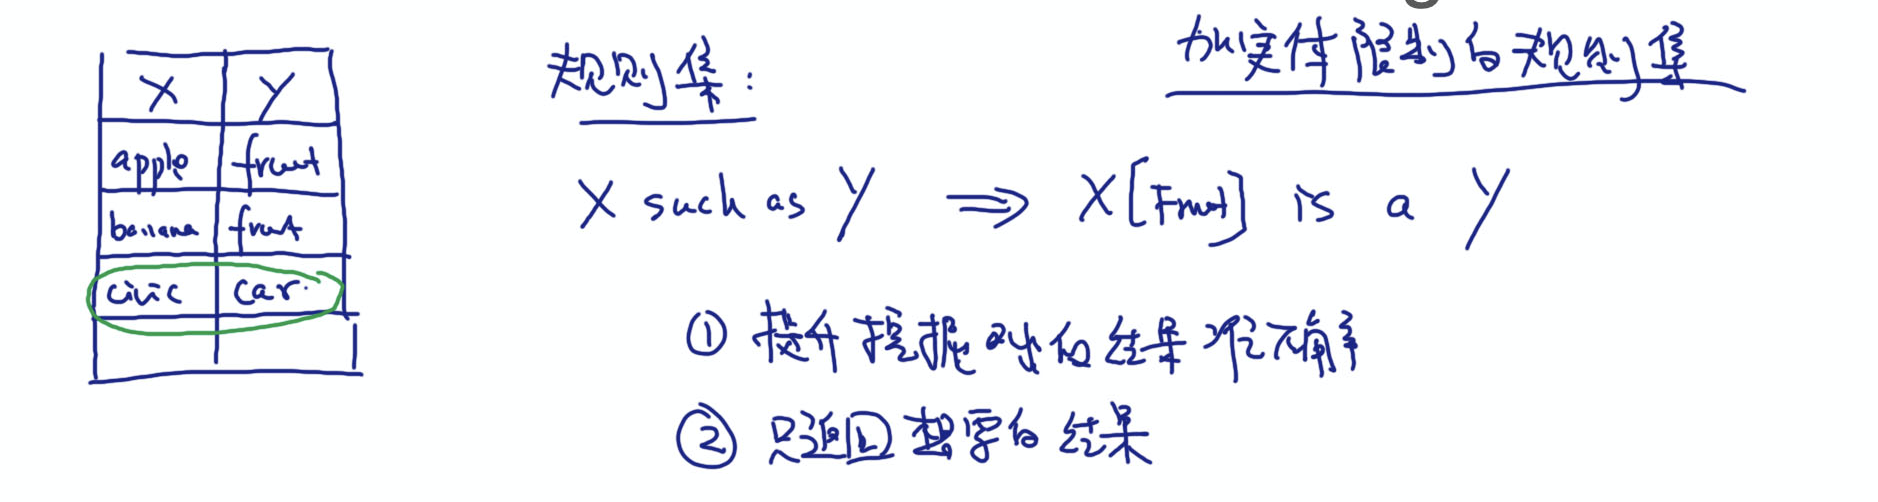 X Y
apple fruit
banana fruit
civic car
规则集：
加实体限制的规则集
X such as Y ⇒ X [Fruit] is a Y
① 提升挖掘出的结果准确率
② 只返回想要的结果